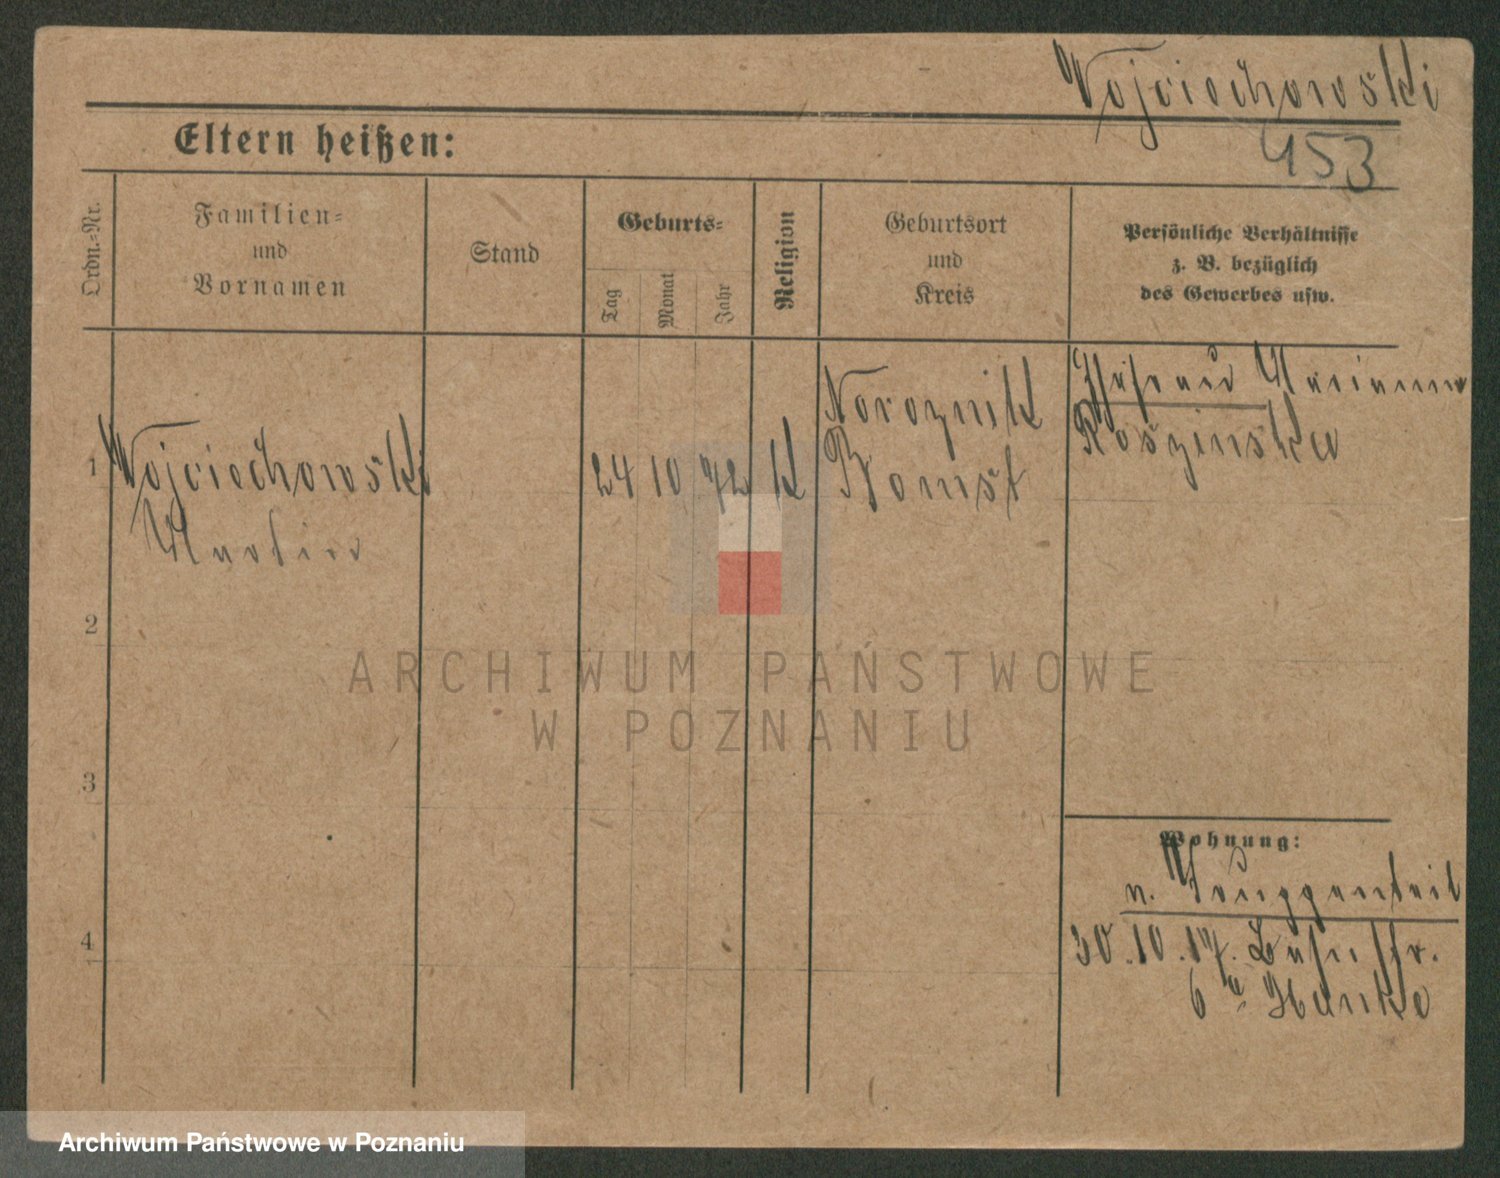 Wojciechowski
453
Eltern heißen:
Ordn.-Nr.
Familien-
und
Vornamen
Stand
Geburts-
Tag
Monat
Jahr
Religion
Geburtsort
und
Kreis
Persönliche Verhältnisse
z. B. bezüglich
des Gewerbes usw.
1
Wojciechowski
Martin
24 10 72 K
Noroznik
Bomst
Ehefrau Marianna
Roszinska
2
3
4
Wohnung:
n.
30.10.17.
6 a Hanke
ARCHIWUM PAŃSTWOWE
W POZNANIU
Archiwum Państwowe w Poznaniu